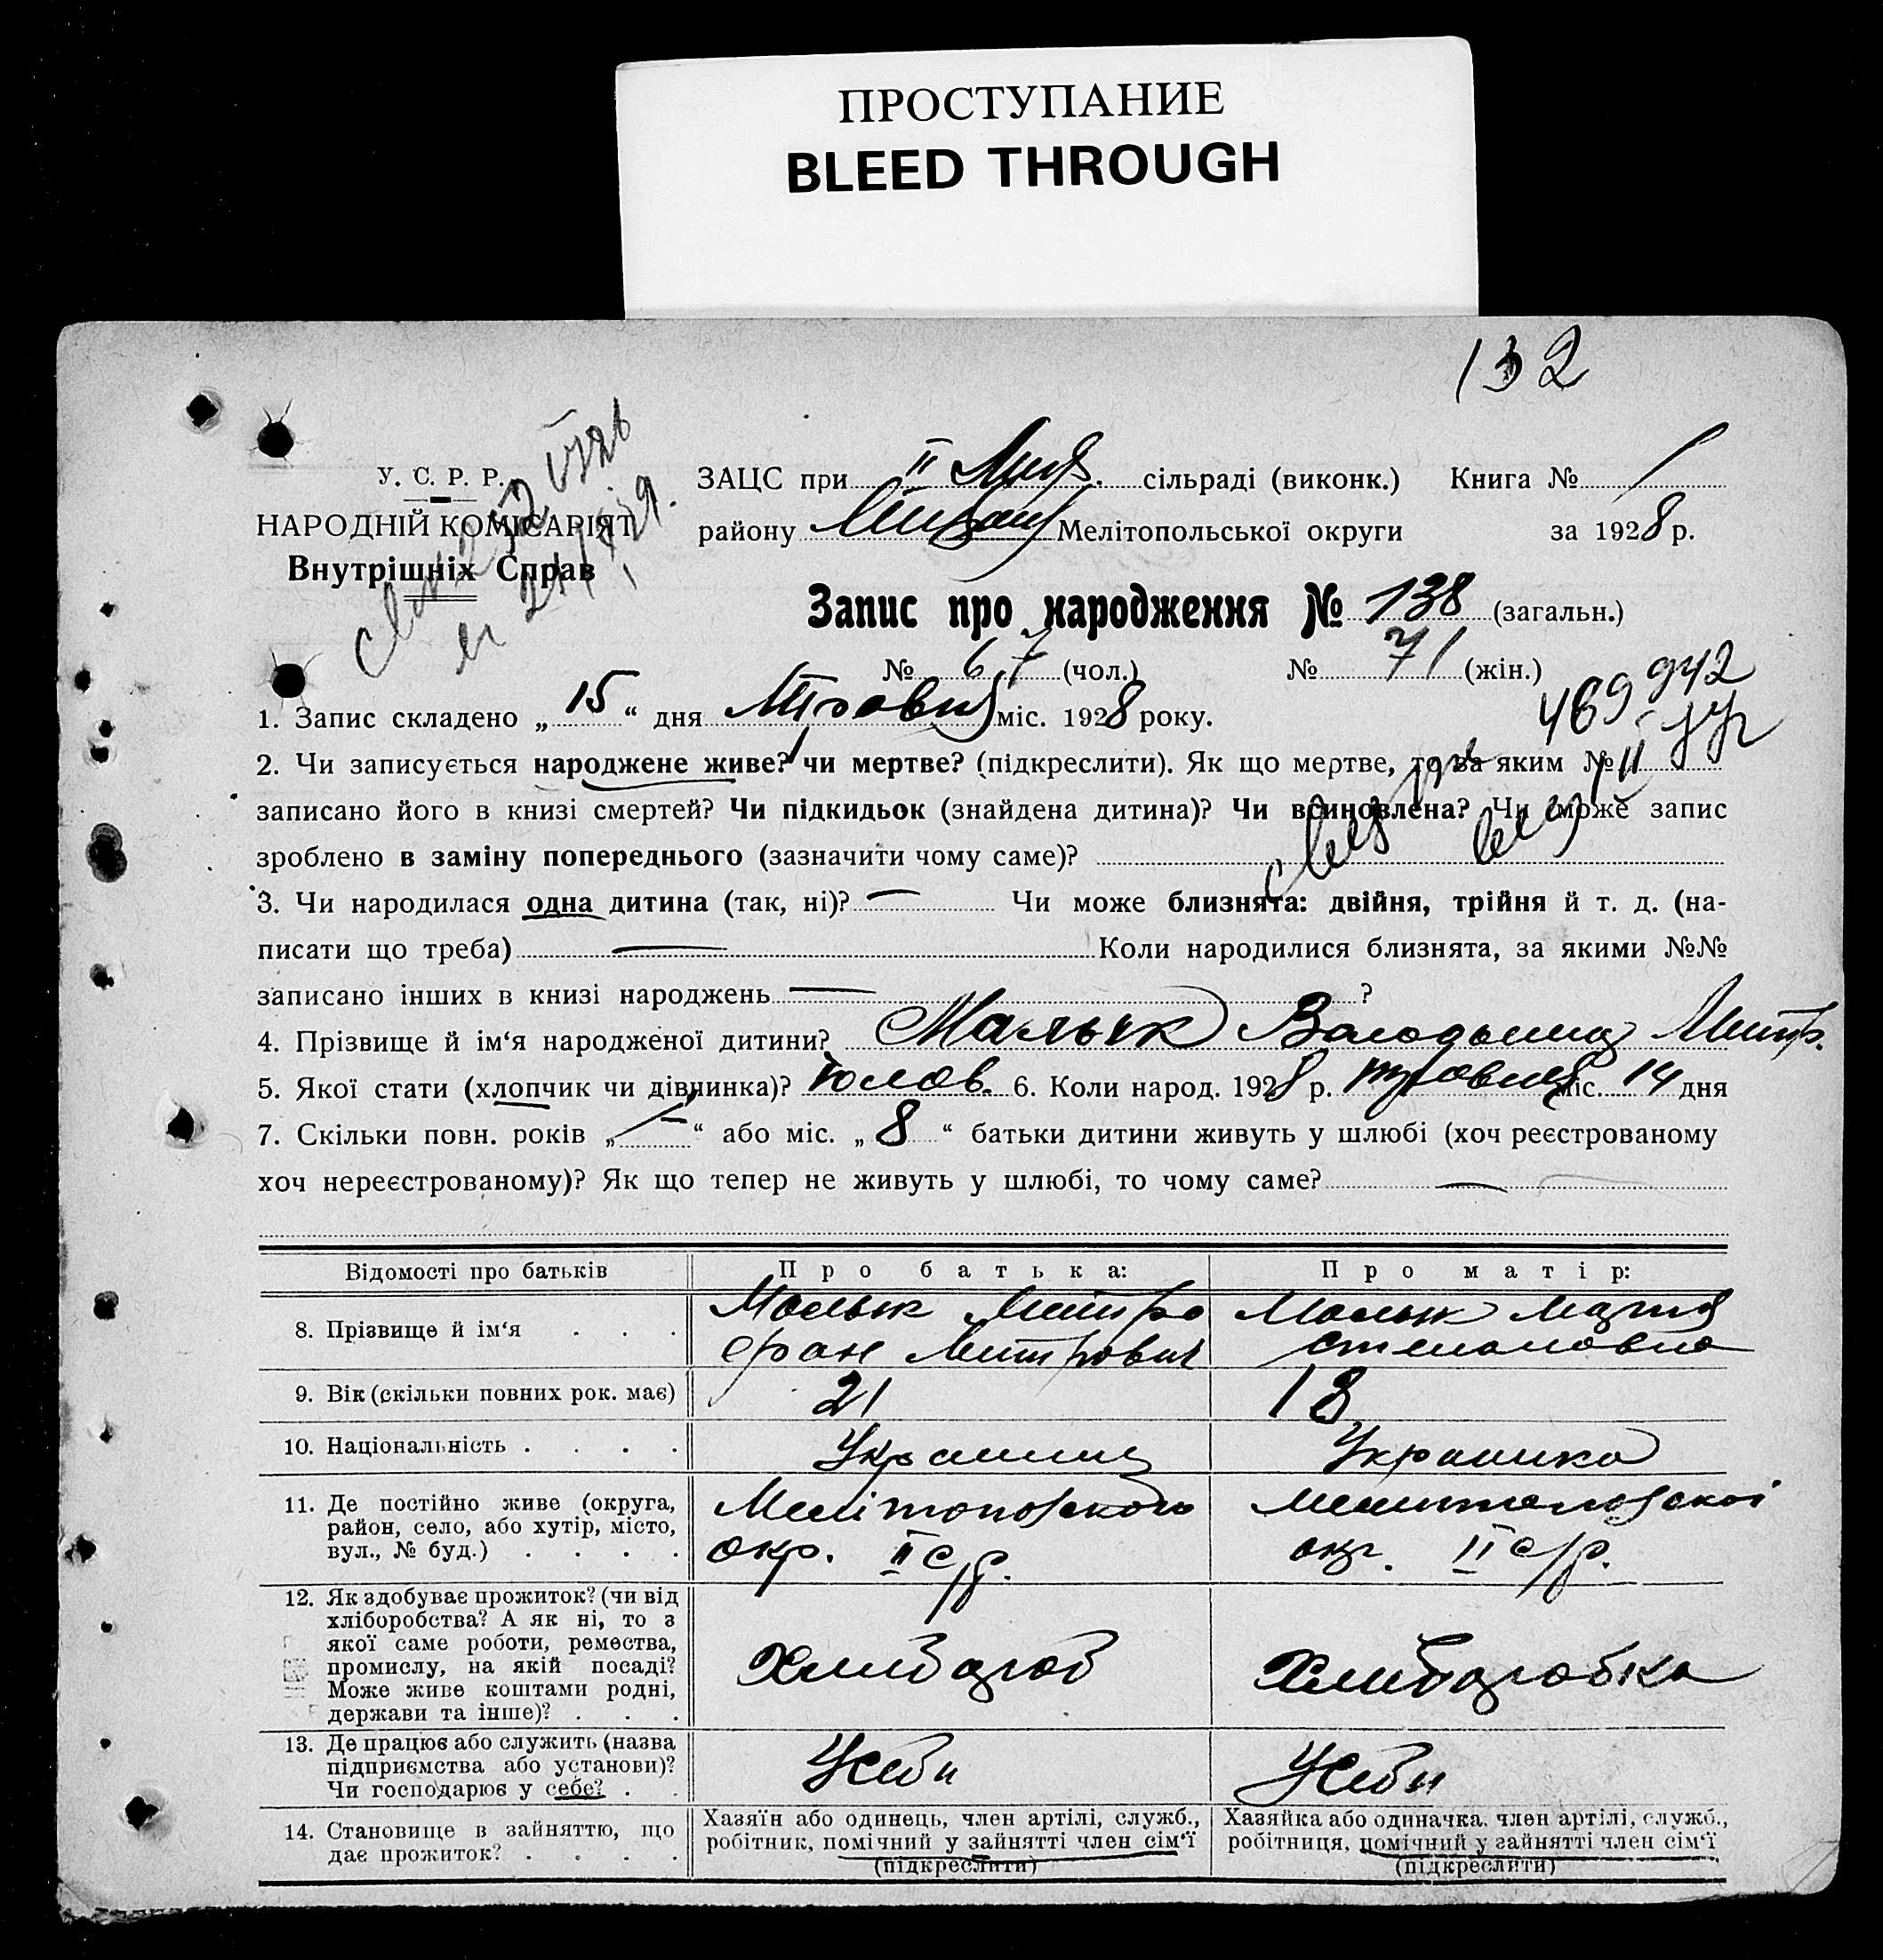 ПРОСТУПАНИЕ
BLEED THROUGH
132
У. С. Р. Р.
НАРОДНІЙ КОМІСАРІЯТ
Внутрішніх Справ
ЗАЦС при II сільраді (виконк.) Книга № 1
району Мелітопольської округи за 1928 р.
Запис про народження № 138 (загальн.)
№ 67 (чол.) № 71 (жін.)
469942
1. Запис складено „ 15 “ дня Травня міс. 1928 року.
2. Чи записується народжене живе? чи мертве? (підкреслити). Як що мертве, то за яким №
записано його в книзі смертей? Чи підкидьок (знайдена дитина)? Чи всиновлена? Чи може запис
зроблено в заміну попереднього (зазначити чому саме)?
3. Чи народилася одна дитина (так, ні)? — Чи може близнята: двійня, трійня й т. д. (на-
писати що треба) — Коли народилися близнята, за якими №№
записано інших в книзі народжень — ?
4. Прізвище й ім‘я народженої дитини? Малык Володымир Митр.
5. Якої стати (хлопчик чи дівчинка)? 6. Коли народ. 1928 р. травня міс. 14 дня
7. Скільки повн. років „ — “ або міс. „ 8 “ батьки дитини живуть у шлюбі (хоч реєстрованому
хоч нереєстрованому)? Як що тепер не живуть у шлюбі, то чому саме? —
Відомості про батьків Про батька: Про матір:
8. Прізвище й ім‘я . . . Малык Митро Малык Мария
фан Митрович Степановна
9. Вік (скільки повних рок. має) 21 18
10. Національність . . . . Украинец Украинка
11. Де постійно живе (округа,
район, село, або хутір, місто,
вул., № буд.) . . . .
Мелітопольского
окр. II с/р.
окр. II с/р.
12. Як здобуває прожиток? (чи від
хліборобства? А як ні, то з
якої саме роботи, ремества,
промислу, на якій посаді?
Може живе коштами родні,
держави та інше)? . . .
Хлибороб Хлиборобка
13. Де працює або служить (назва
підприємства або установи)?
Чи господарює у себе? . .
У себи У себи
14. Становище в зайняттю, що
дає прожиток? . . . .
Хазяїн або одинець, член артілі, служб.,
робітник, помічний у зайнятті член сім‘ї
(підкреслити)
Хазяйка або одиначка, член артілі, служб.,
робітниця, помічний у зайнятті член сім‘ї
(підкреслити)